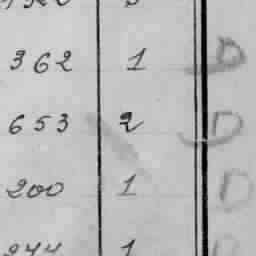 362 1 D
653 2 D
200 1 D
244 1 D